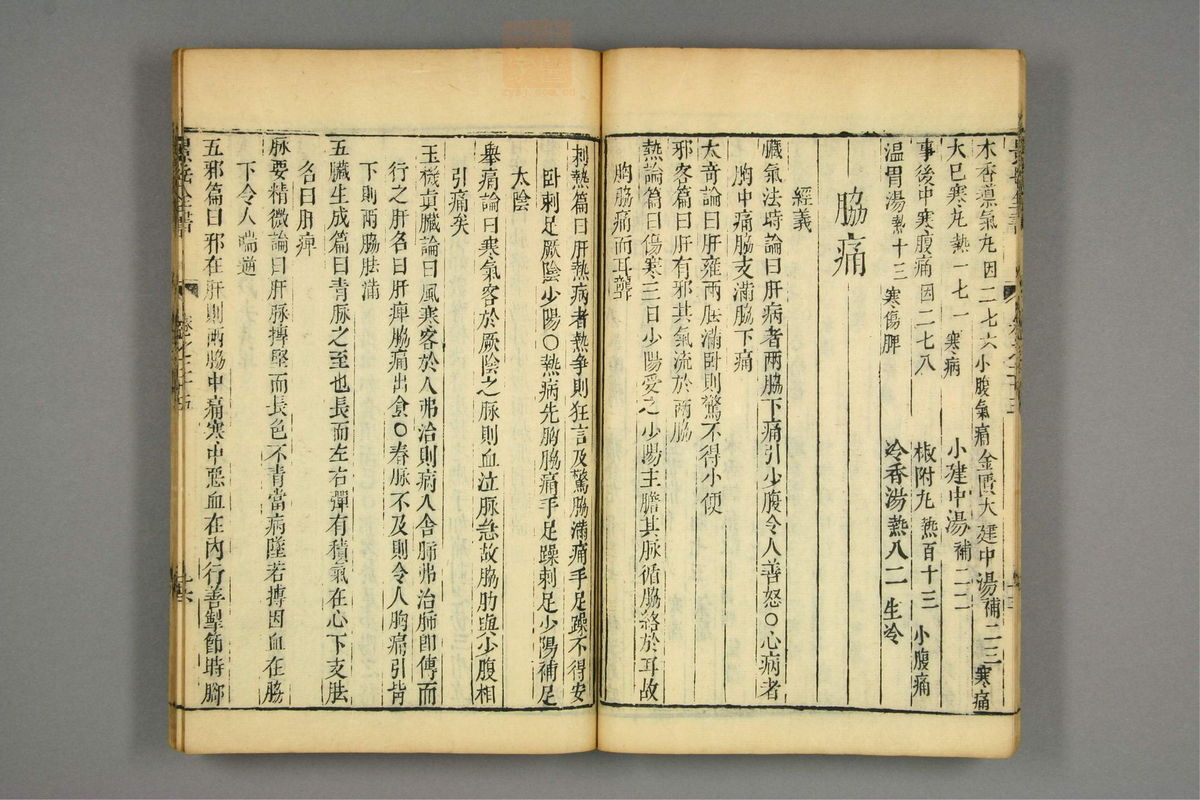 木香導氣丸因二七六小腹氣痛金匱大建中湯補二三寒痛
大巳寒丸熱一七一寒病 小建中湯補二二
事後中寒腹痛因二七八 椒附丸熱百十三 小腹痛
温胃湯熱十三寒傷脾 冷香湯熱八二生冷
脇痛
經義
臟氣法時論曰肝病者兩脇下痛引少腹令人善怒〇心病者
胸中痛脇支滿脇下痛
大奇論曰肝雍兩胠滿卧則驚不得小便
邪客篇曰肝有邪其氣流於兩脇
熱論篇曰傷寒三日少陽受之少陽主膽其脉循脇絡於耳故
胸脇痛而耳聾
刺熱篇曰肝熱病者熱爭則狂言及驚脇滿痛手足躁不得安
卧刺足厥陰少陽〇熱病先胸脇痛手足躁刺足少陽補足
太陰
舉痛論曰寒氣客於厥陰之脉則血泣脉急故脇肋與少腹相
引痛矣
玉機真臟論曰風寒客於人弗治則病入舍肺弗治肺卽傳而
行之肝名曰肝痺脇痛出食〇春脉不及則令人胸痛引背
下則兩脇胠滿
五臟生成篇曰青脉之至也長而左右彈有積氣在心下支胠
名曰肝痺
脉要精微論曰肝脉搏堅而長色不青當病墜若搏因血在脇
下令人喘逆
五邪篇曰邪在肝則兩脇中痛寒中惡血在內行善掣節時腳